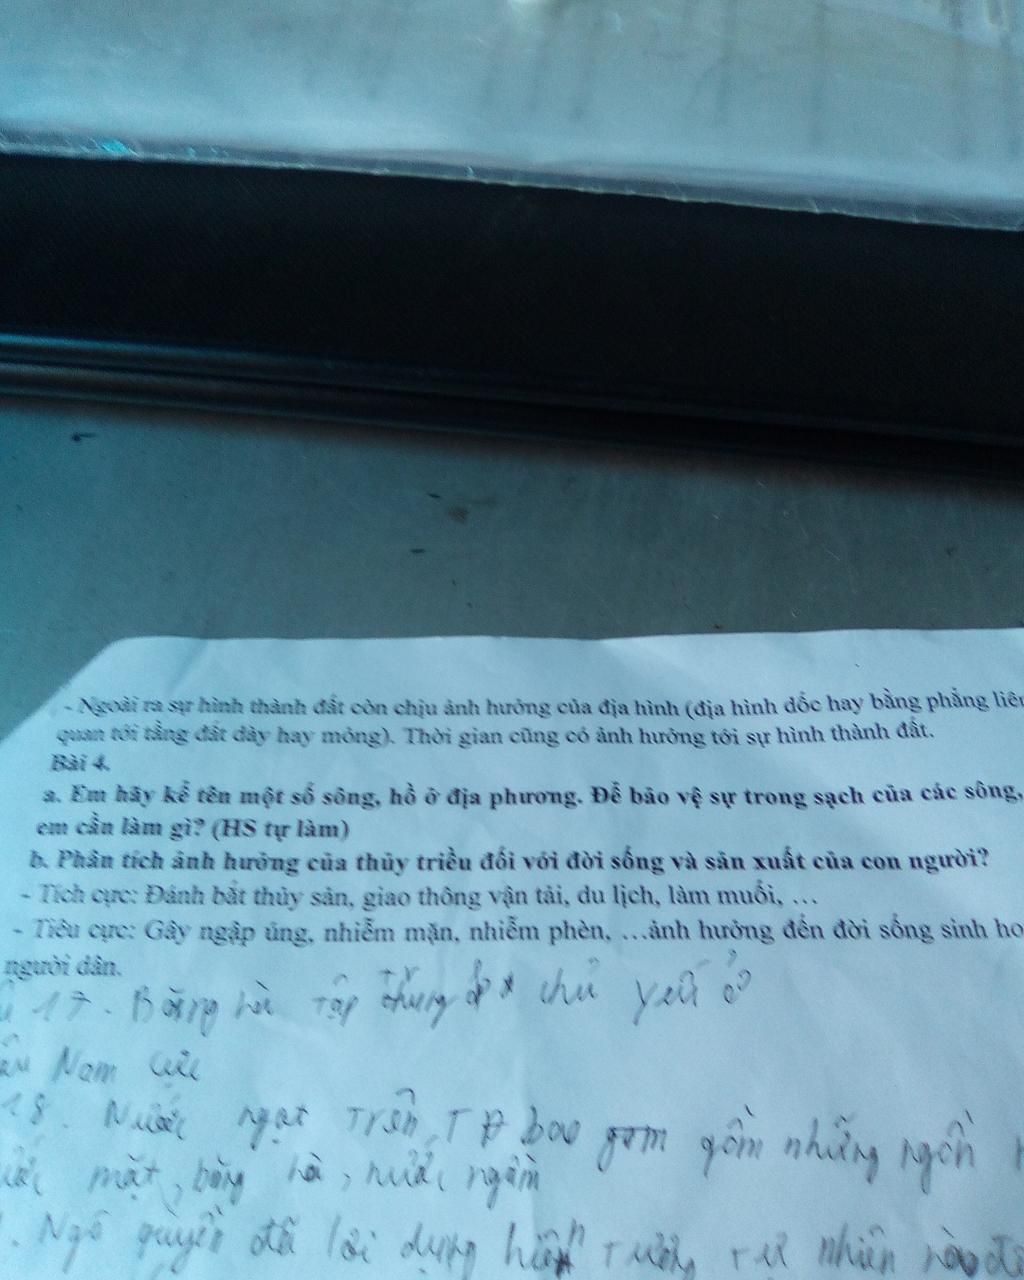 - Ngoài ra sự hình thành đất còn chịu ảnh hưởng của địa hình (địa hình dốc hay bằng phẳng liên
quan tới tầng đất dày hay mỏng). Thời gian cũng có ảnh hưởng tới sự hình thành đất.
Bài 4.
a. Em hãy kể tên một số sông, hồ ở địa phương. Để bảo vệ sự trong sạch của các sông,
em cần làm gì? (HS tự làm)
b. Phân tích ảnh hưởng của thủy triều đối với đời sống và sản xuất của con người?
- Tích cực: Đánh bắt thủy sản, giao thông vận tải, du lịch, làm muối, …
- Tiêu cực: Gây ngập úng, nhiễm mặn, nhiễm phèn, …ảnh hưởng đến đời sống sinh ho
người dân.
17. Băng hà tập trung chủ yếu ở
Nam cực
18. Nước ngọt trên TĐ bao gồm những nguồn
mặt, băng hà, nước ngầm
Ngô quyền đã lợi dụng hiện tượng tự nhiên nào để